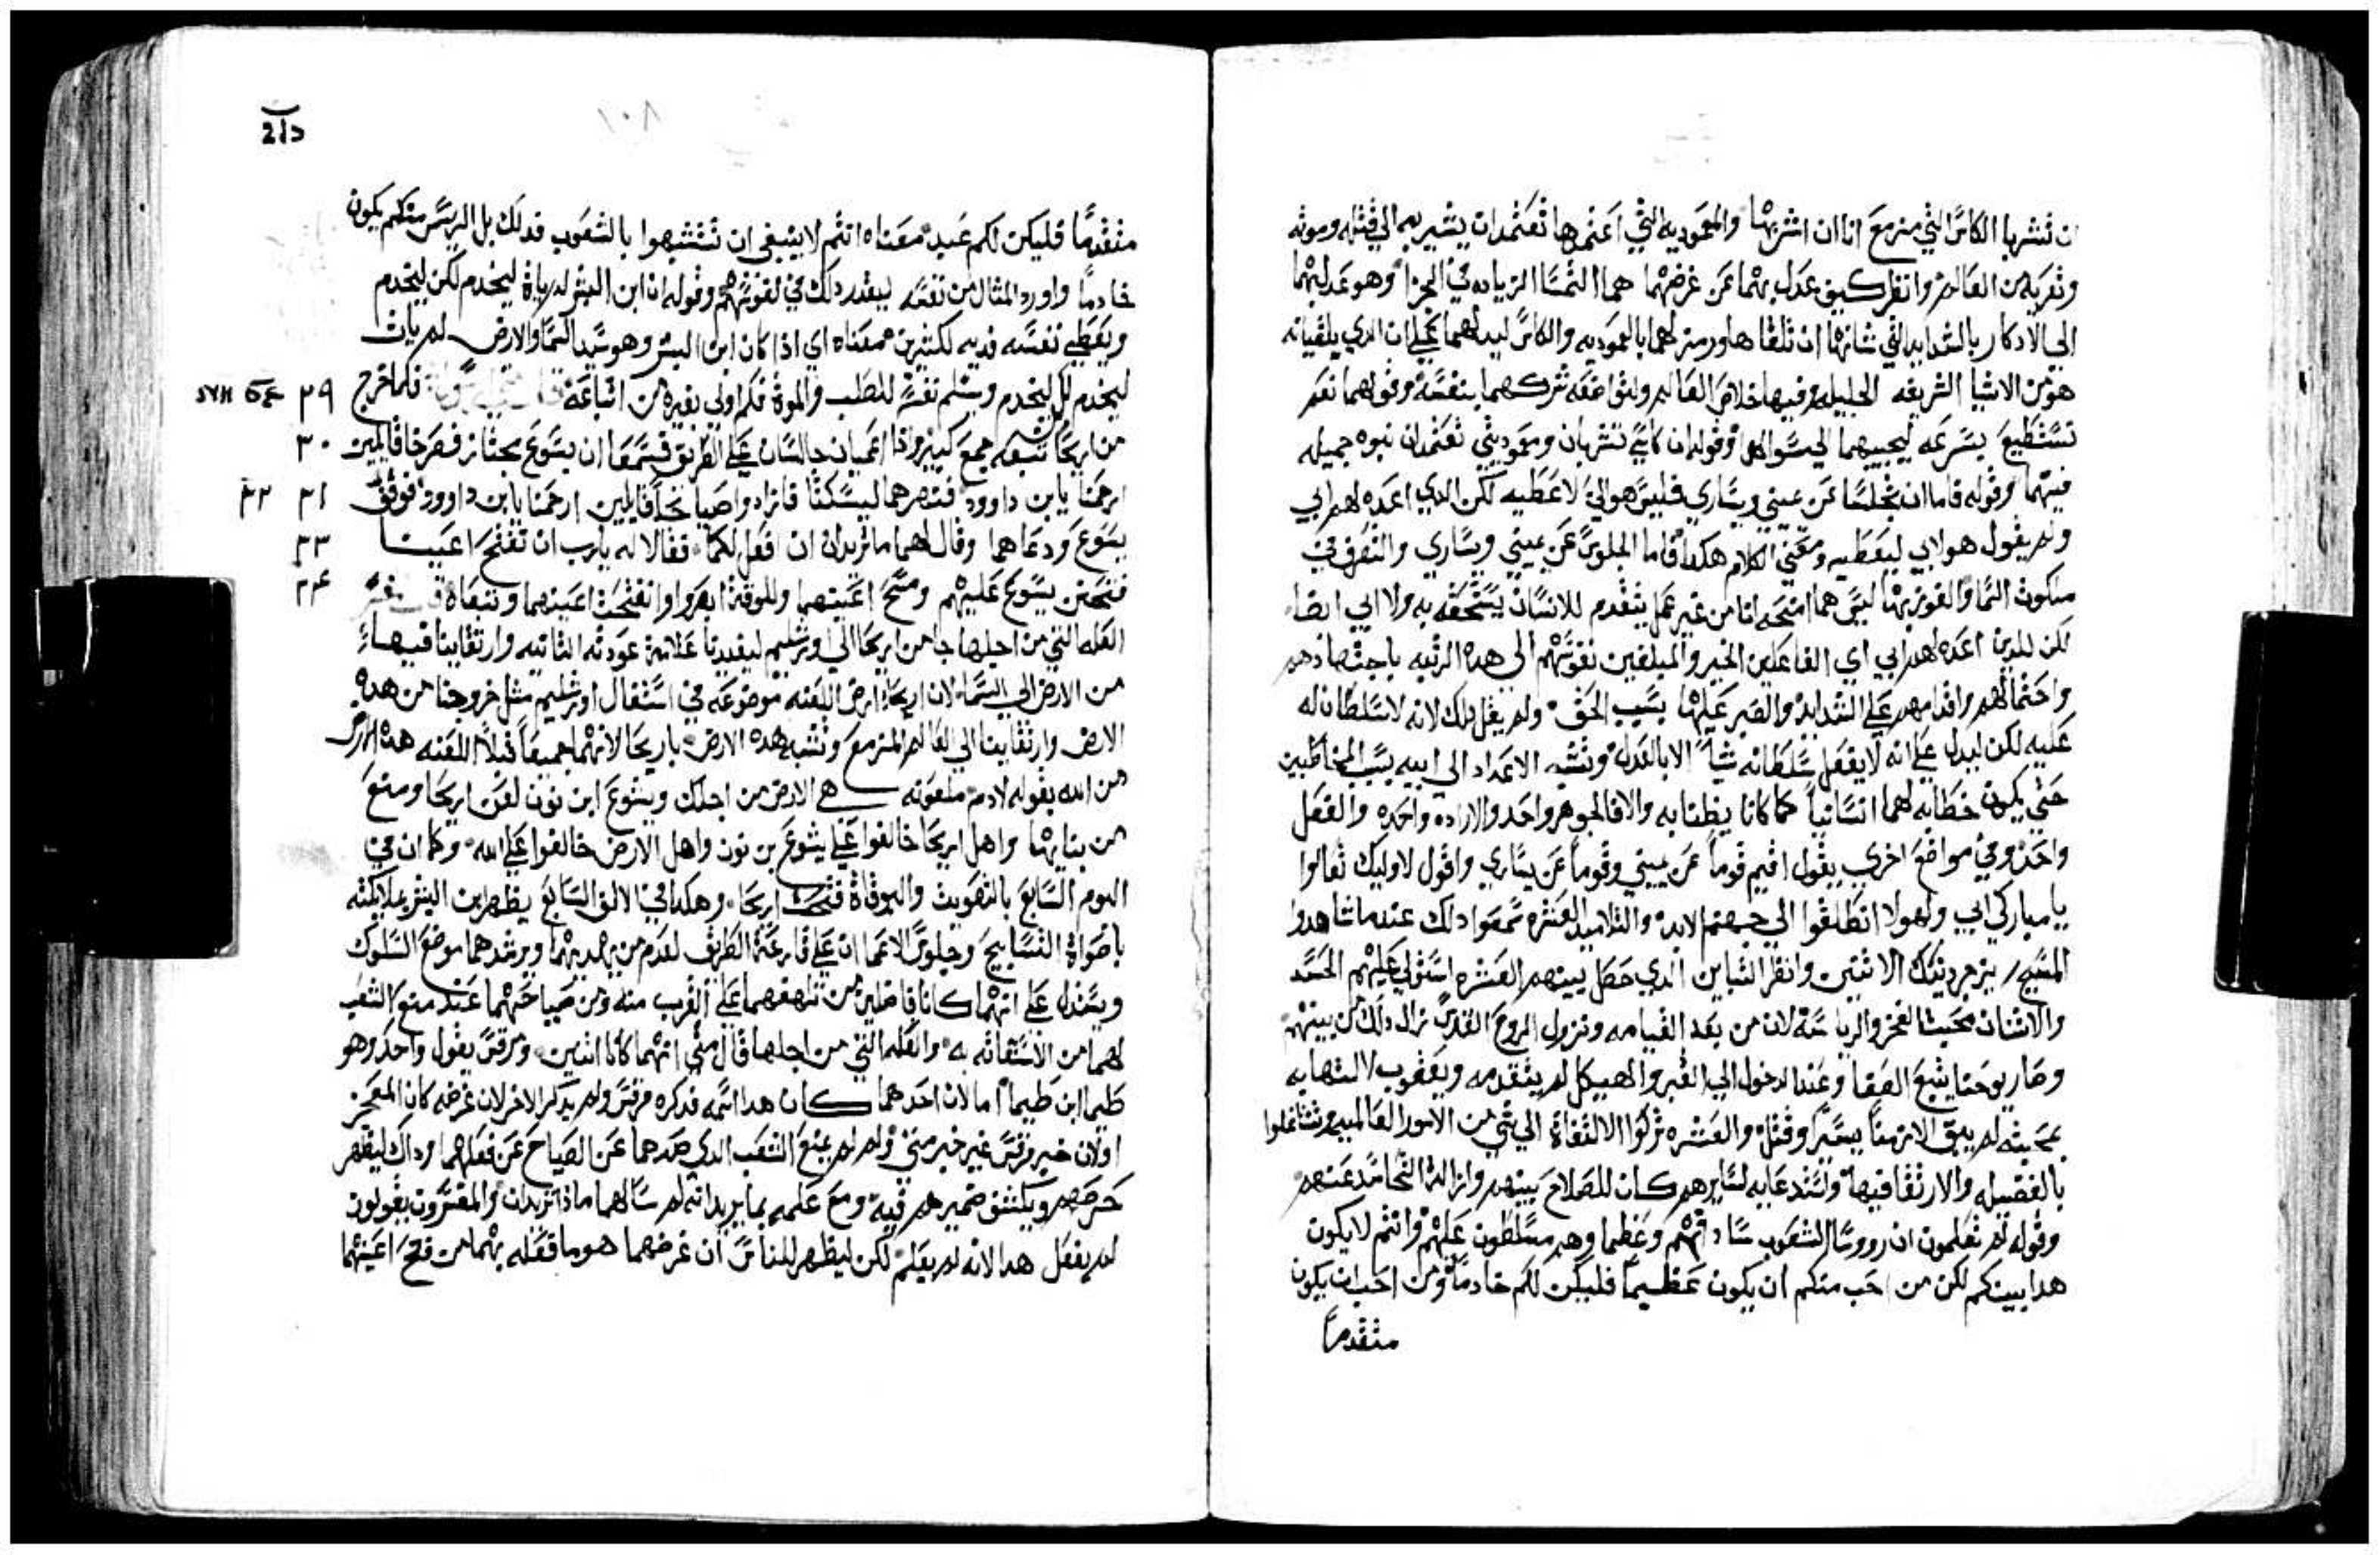 ان تشربا الكاس التي مزمع انا ان اشربها والمعموديه التي اعتمدها تعتمدان يشير بهم الي قتله وموته
وتعريه من العالم وانظر كيف عدل بهما عن غرضهما هما التمسا الزياده في الجزا وهو عدل بهما
الي الادكار بالشدايد التي شانهما ان تلقاها ورمز لهما بالمعموديه والكاس ليدلهما علي ان الدي يلقيانه
هو من الاشيا الشريفه الجليله وفيها خلاص العالم ولتواضعه شركهما بنفسه وقولهما نعم
نستطيع بسرعه ليجيبهما الي سوالهما وقوله ان كاسي تشربان ومعموديتي تعتمدان نبوه جميله
فيهما وقوله فاما ان تجلسا عن يميني ويساري فليس هو الي لاعطيه لكن الدي اعده لهم ابي
ولم يقول هو لابي ليعطيه ومعني الكلام هكدا فاما الجلوس عن يميني ويساري والتعرف في
ملكوت السما والفوز بها ليس هما امنحه انا من غير عمل يتقدم للانسان يستحقه به ولا ابي ايضا
لكن للدين اعده لهم ابي اي الفاعلين الخير والمبلغين نفوسهم الي هده الرتبه باجتهادهم
واحتمالهم واقدامهم علي الشدايد والصبر عليها بسبب الحق ولم يقل دلك لانه لا سلطان له
عليه لكن ليدل علي انه لا يفعل بسلطانه شيا الا بالعدل ونسب الاعداد الي ابيه بسبب المخاطبين
حتي يكون خطابه لهما انسانيا كما كانا يظنا به والا فالجوهر واحد والاراده واحده والفعل
واحد وفي مواضع اخري يقول اقيم قوما عن يميني وقوما عن يساري واقول لاوليك تعالوا
يا مباركي ابي ولهولا انطلقوا الي جهنم الابد والتلاميد العشره سمعوا دلك عندما شاهدوا
المسيح يزجر دينك الاثنين وانظر التباين الدي حصل بينهم العشره استولي عليهم الحسد
والاثنان محبة الفخر والرياسة لان من بعد القيامه ونزول الروح القدس زال دلك من بينهم
وصار يوحنا يتبع الصفا وعند الدخول الي القبر والهيكل لم يتقدمه ويعقوب لالتهابه
بمحبته لم يبق الا زمنا يسيرا وقتل والعشره تركوا الالتفاة الي شي من الامور العالميه وتشاغلوا
بالفضيله والارتقا فيها واستدعايه لسايرهم كان للصلاح بينهم وازالة التحاسد عنهم
وقوله لم تعلمون ان رووسا الشعوب ساداتهم وعظما وهم مسلطون عليهم وانتم لا يكون
هدا بينكم لكن من احب منكم ان يكون عظيما فليكن لكم خادما ومن احب ان يكون
متقدما
متقدما فليكن لكم عبد معناه انتم لا ينبغي ان تتشبهوا بالشعوب في دلك بل الريس منكم يكون
خادما واورد المثال من نفسه ليقدر دلك في نفوسهم وقوله ان ابن البشر لم ياة ليخدم لكن ليخدم
ويعطي نفسه فديه لكثيرين معناه اي اذا كان ابن البشر وهو سيد السما والارض لم يات
ليخدم بل ليخدم ويسلم نفسه للصلب والموة فكم اولي بغيره من اتباعه فكما خرج ٢٩
من اريحا تبعه جمع كبير واذا اعميان جالسان علي الطريق فسمعا ان يسوع مجتاز فصرخا قايلين ٣٠
ارحمنا يا بن داوود فنهرهما ليسكتا فازدادوا صياحا قايلين ارحمنا يا بن داوود فوقف ٣١ ٣٢
يسوع ودعاهما وقال لهما ما تريدان ان افعل لكما فقالا له يا رب ان تفتح اعيننا ٣٣
فتحنن يسوع عليهم ومسح اعينهما وللوقة ابصروا وانفتحت اعينهما وتبعاه ٣٤
العله التي من اجلها جا من اريحا الي اورشليم ليفيدنا علامة عودته الثانيه وارتقاينا فيها
من الارض الي السما لان اريحا ارض اللعنه موضوعه في استفال اورشليم مثل خروجنا من هده
الارض وارتقاينا الي العالم المزمع وتشبه هده الارض باريحا لانهما جميعا قبلا اللعنه هده الارض
من الله بقوله لادم ملعونه هي الارض من اجلك ويشوع ابن نون لعن اريحا ومنع
من بنايها واهل اريحا خالفوا علي يشوع بن نون واهل الارض خالفوا علي الله وكما ان في
اليوم السابع بالتصويت والبوقاة فتحت اريحا وهكدا في الالف السابع يظهر ابن البشر بملايكته
باصواة التسابيح وجلوس الاعمان علي قارعة الطريق لعدم من يهديهما ويرشدهما موضع السلوك
ويستدل علي انهما كانا فاضلين من تلهفهما علي القرب منه ومن صياحهما عند منع الشعب
لهما من الاستغاثه به والعله التي من اجلها قال متي انهما كانا اثنين ومرقس يقول واحد وهو
طيما ابن طيما اما لان احدهما كان هدا اسمه فدكره مرقس ولم يدكر الاخر لان غرضه كان المعجز
او لان خبر مرقس غير خبر متي ولم لم يمنع الشعب الدي صدهما عن الصياح عن فعلهما وداك ليظهر
حرصهم ويكشف ضميرهم فيه ومع علمه بما يريدانه لم سالهما ماذا تريدان والمفسرون يقولون
لم يفعل هدا لانه لم يعلم لكن ليظهر للناس ان غرضهما هو ما فعله بهما من فتح اعينهما